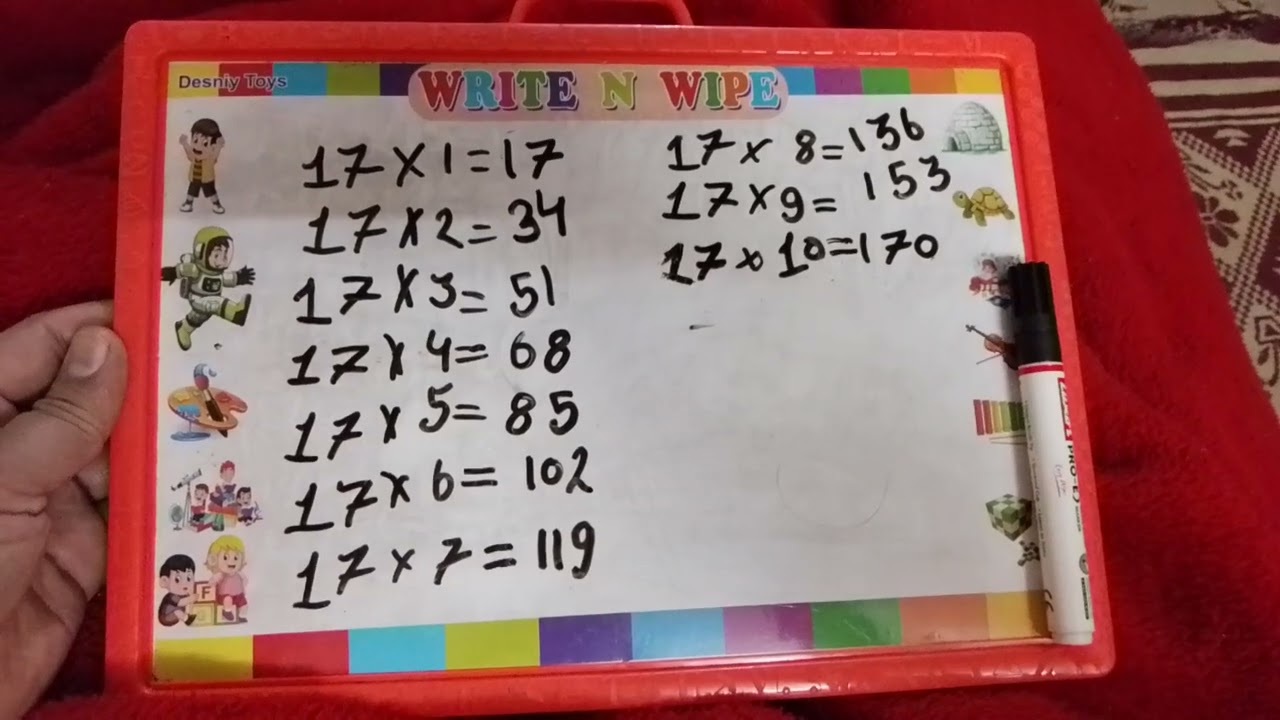 Desniy Toys
WRITE N WIPE
17 x 1 = 17
17 x 2 = 34
17 x 3 = 51
17 x 4 = 68
17 x 5 = 85
17 x 6 = 102
17 x 7 = 119
17 x 8 = 136
17 x 9 = 153
17 x 10 = 170
F
PRO-